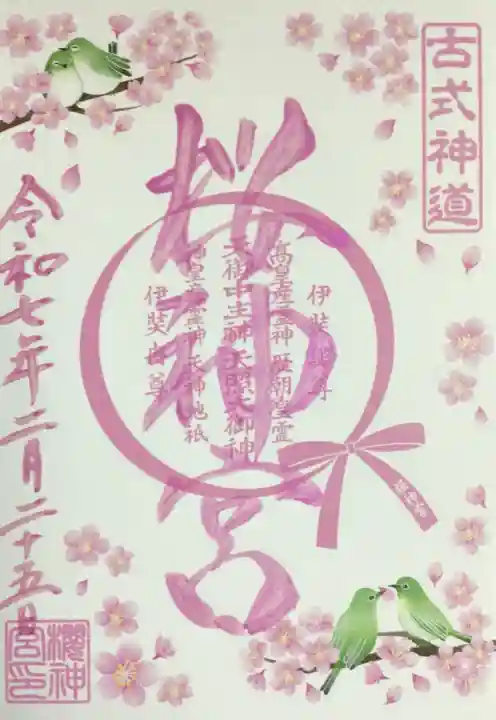 古式神道
桜神宮
伊弉冊尊
高皇産霊神 歴朝皇霊
天御中主神 天照大御神
神皇産霊神 天神地祇
伊奘諾尊
桜神宮
令和七年二月二十五日
櫻神
宮印